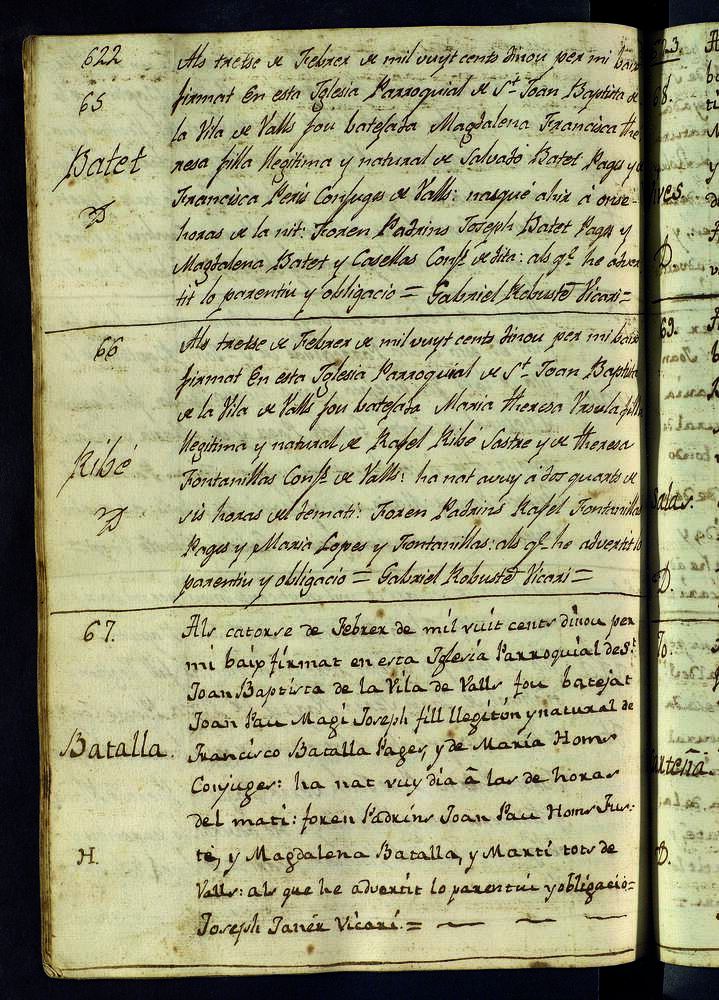 622
65
Batet
D
Als tretse de Febrer de mil vuyt cents dinou per mi baix
firmat En esta Iglesia Parroquial de St. Joan Baptista de
la Vila de Valls fou batejada Magdalena Francisca The
resa filla llegitima y natural de Salvadó Batet Pages y de
Francisca Peris Conjuges de Valls: nasqué ahir á onse
horas de la nit: Foren Padrins Joseph Batet Pages y
Magdalena Batet y Casellas Conjs. de dita: als qs. he adver
tit lo parentiu y obligacio = Gabriel Robusté Vicari =
66
Ribé
D
Als tretse de Febrer de mil vuyt cents dinou per mi baix
firmat En esta Iglesia Parroquial de St. Joan Baptista
de la Vila de Valls fou batejada Maria Theresa Ursula filla
llegitima y natural de Rafel Ribé Sastre y de Theresa
Fontanillas Conjs. de Valls: ha nat avuy á dos quarts de
sis horas del demati: Foren Padrins Rafel Fontanillas
Pages y Maria Lopes y Fontanillas: als qs. he advertit lo
parentiu y obligacio = Gabriel Robusté Vicari =
67.
Batalla.
H.
Als catorse de Febrer de mil vuit cents dinou per
mi baix firmat en esta Iglesia Parroquial de St.
Joan Baptista de la Vila de Valls fou batejat
Joan Pau Magi Joseph fill llegitim y natural de
Francisco Batalla Pages, y de Maria Homs
Conjuges: ha nat vuy dia á las de horas
del mati: foren Padrins Joan Pau Homs Fus-
té, y Magdalena Batalla, y Martí tots de
Valls: als que he advertit lo parentiu y obligació=
Joseph Janér Vicari. =
69.
Salas.
D.
D.